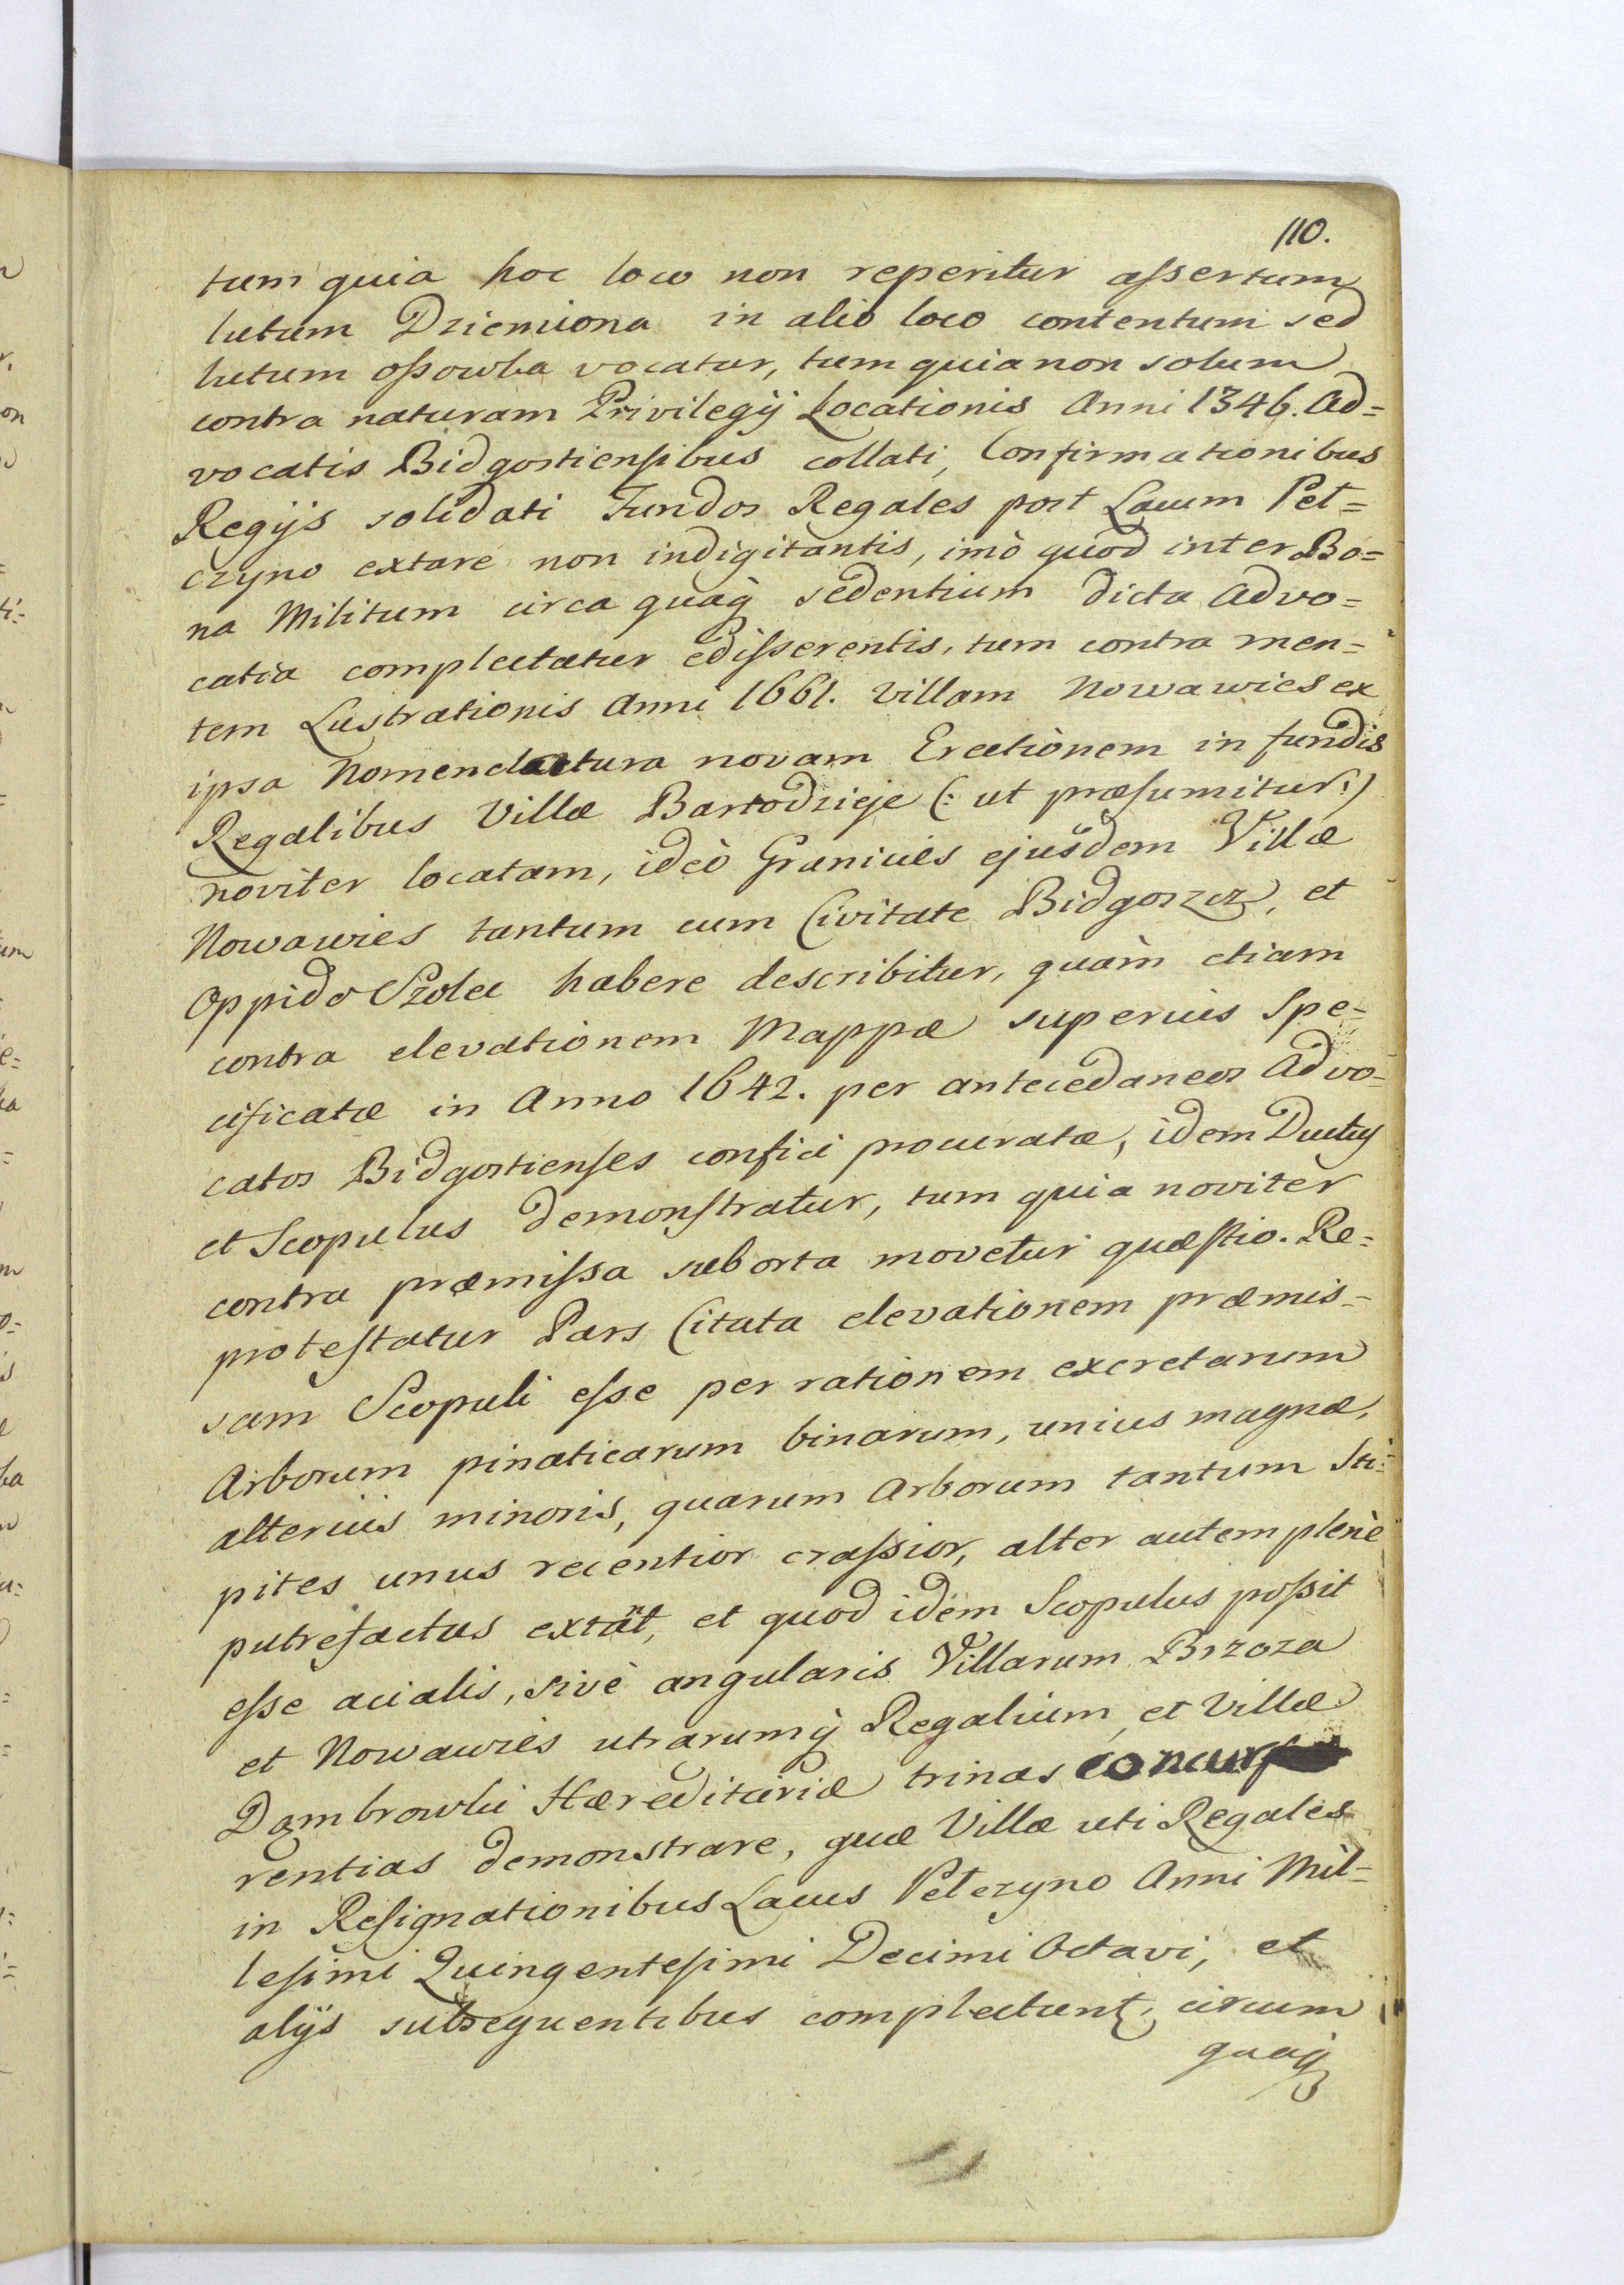 110.
tum quia hoc loco non reperitur assertum
lutum Dziemiona in alio loco contentum sed
lutum ossowka vocatur, tum quia non solum
contra naturam Privilegij Locationis Anni 1346. Ad=
vocatis Bidgostiensibus collati, Confirmationibus
Regijs solidati Fundos Regales post Lacum Pet=
czyno extare non indigitantis, imò quod inter Bo=
na Militum circa quaq̃ sedentium dicta Advo=
catia complectatur edisserentis, tum contra men=
tem Lustrationis Anni 1661. Villam Nowawies ex
ipsa Nomenclatura novam Erectionem in fundis
Regalibus Villæ Bartodzieje (: ut præsumitur :)
noviter locatam, ideò Granicies ejusdem Villæ
Nowawies tantum cum Civitate Bidgoszcz, et
Oppido Szolec habere describitur, quàm etiam
contra elevationem Mappæ superius Spe=
cificatæ in Anno 1642. per antecedaneos Advo=
catos Bidgostienses confici procuratæ, idem Ductus
et Scopulus demonstratur, tum quia noviter
contra præmissa suborta movetur quæstio. Re=
protestatur Pars Citata elevationem præmis=
sam Scopuli esse per rationem excretarum
Arborum pinaticarum binarum, unius magnæ,
alterius minoris, quarum Arborum tantum Sti=
pites unus recentior crassior, alter autem plenè
putrefactus extãt, et quod idem Scopulus possit
esse acialis, sivè angularis Villarum Brzoza
et Nowawies utrarumq̃ Regalium, et Villæ
Dąmbrowki Hæreditariæ trinas concur
rentias demonstrare, quæ Villæ uti Regales
in Resignationibus Lacus Petczyno Anni Mil=
lesimi Quingentesimi Decimi Octavi, et
alijs subsequentibus complectunt, circum
quaq̃